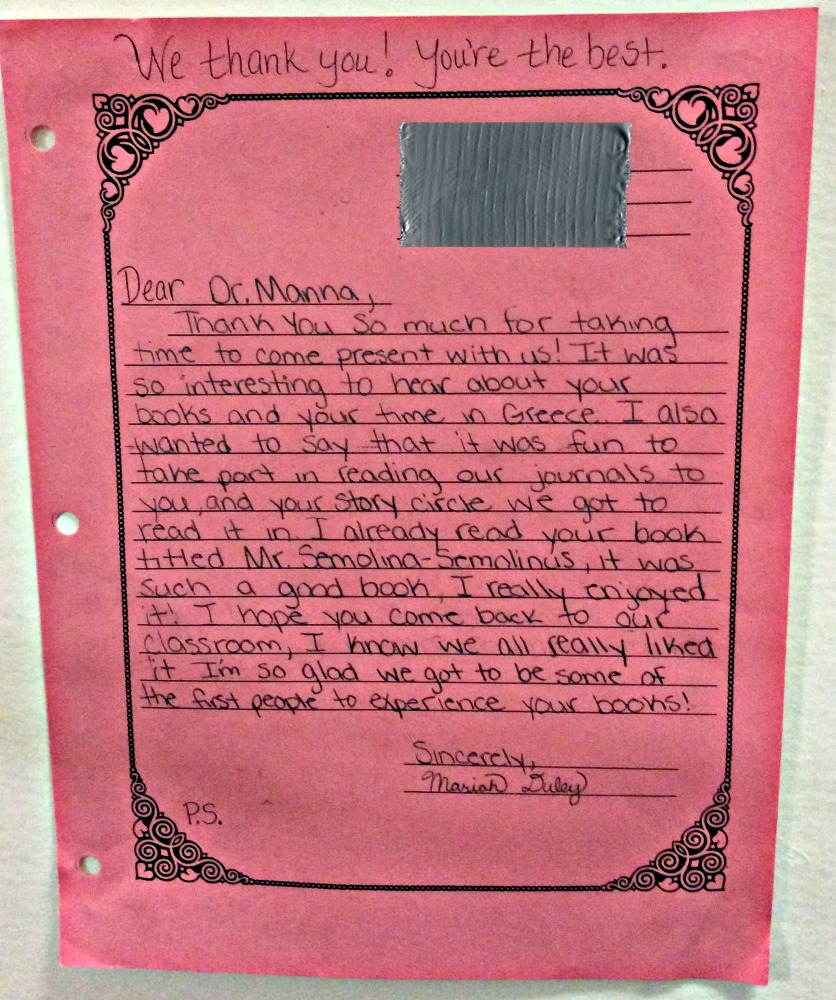 We thank you! You're the best.
Dear Dr. Manna,
Thank You So much for taking
time to come present with us! It was
so interesting to hear about your
books and your time in Greece. I also
wanted to say that it was fun to
take part in reading our journals to
you, and your story circle we got to
read it in. I already read your book
titled Mr. Semolina-Semolinus, it was
such a good book, I really enjoyed
it! I hope you come back to our
classroom, I know we all really liked
it I'm so glad we got to be some of
the first people to experience your books!
Sincerely,
Mariah Duley
P.S.